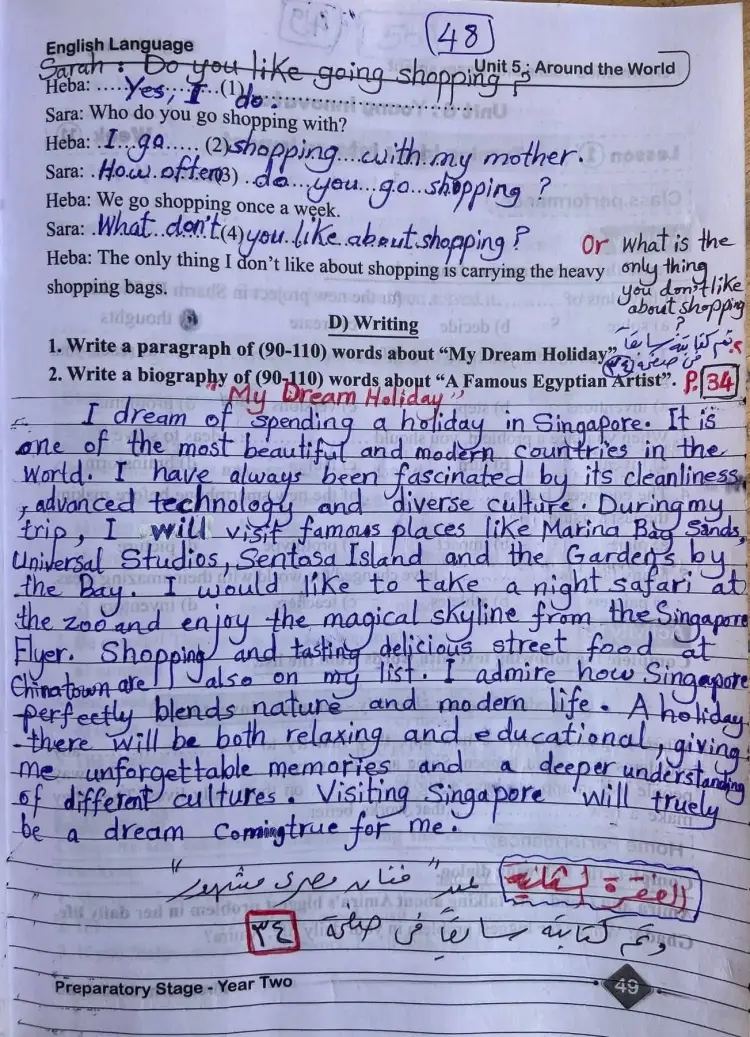 48
English Language
Unit 5 : Around the World
Sarah : Do you like going shopping ?
Heba: .....Yes, I...(1)do.......................
Sara: Who do you go shopping with?
Heba: .I...go......(2)shopping....with.my mother.
Sara: .How.often(3) .do...you...go..shopping ?
Heba: We go shopping once a week.
Sara: .What..don't.(4)you.like.about.shopping ?
Or What is the
only thing
you don't like
about shopping
?
Heba: The only thing I don't like about shopping is carrying the heavy
shopping bags.
D) Writing
1. Write a paragraph of (90-110) words about “My Dream Holiday”
تم كتابته سابقاً
فى صفحة (٣٤)
2. Write a biography of (90-110) words about “A Famous Egyptian Artist”. P. 34
"My Dream Holiday"
I dream of spending a holiday in Singapore. It is
one of the most beautiful and modern countries in the
world. I have always been fascinated by its cleanliness
, advanced technology and diverse culture. During my
trip, I will visit famous places like Marina Bag Sands,
Universal Studios, Sentosa Island and the Gardens by
the Bay. I would like to take a night safari at
the zoo and enjoy the magical skyline from the Singapore
Flyer. Shopping and tasting delicious street food at
Chinatown are also on my list. I admire how Singapore
perfectly blends nature and modern life. A holiday
there will be both relaxing and educational, giving
me unforgettable memories and a deeper understanding
of different cultures. Visiting Singapore will truely
be a dream coming true for me.
الفقرة الثانية عن "فنان مصرى مشهور"
وتم كتابته سابقاً فى صفحة ٣٤
Preparatory Stage - Year Two
49